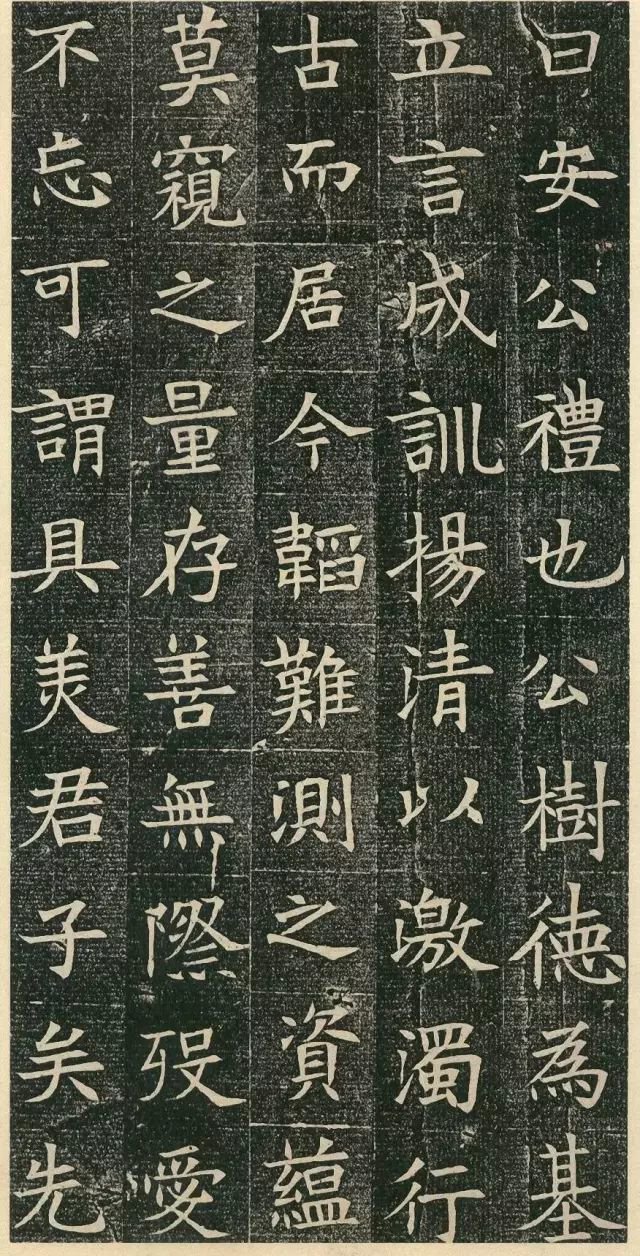 曰安公禮也公樹徳為基
立言成訓揚清以激濁行
古而居今韜難測之資蘊
莫窺之量存善無際歿愛
不忘可謂具美君子矣先